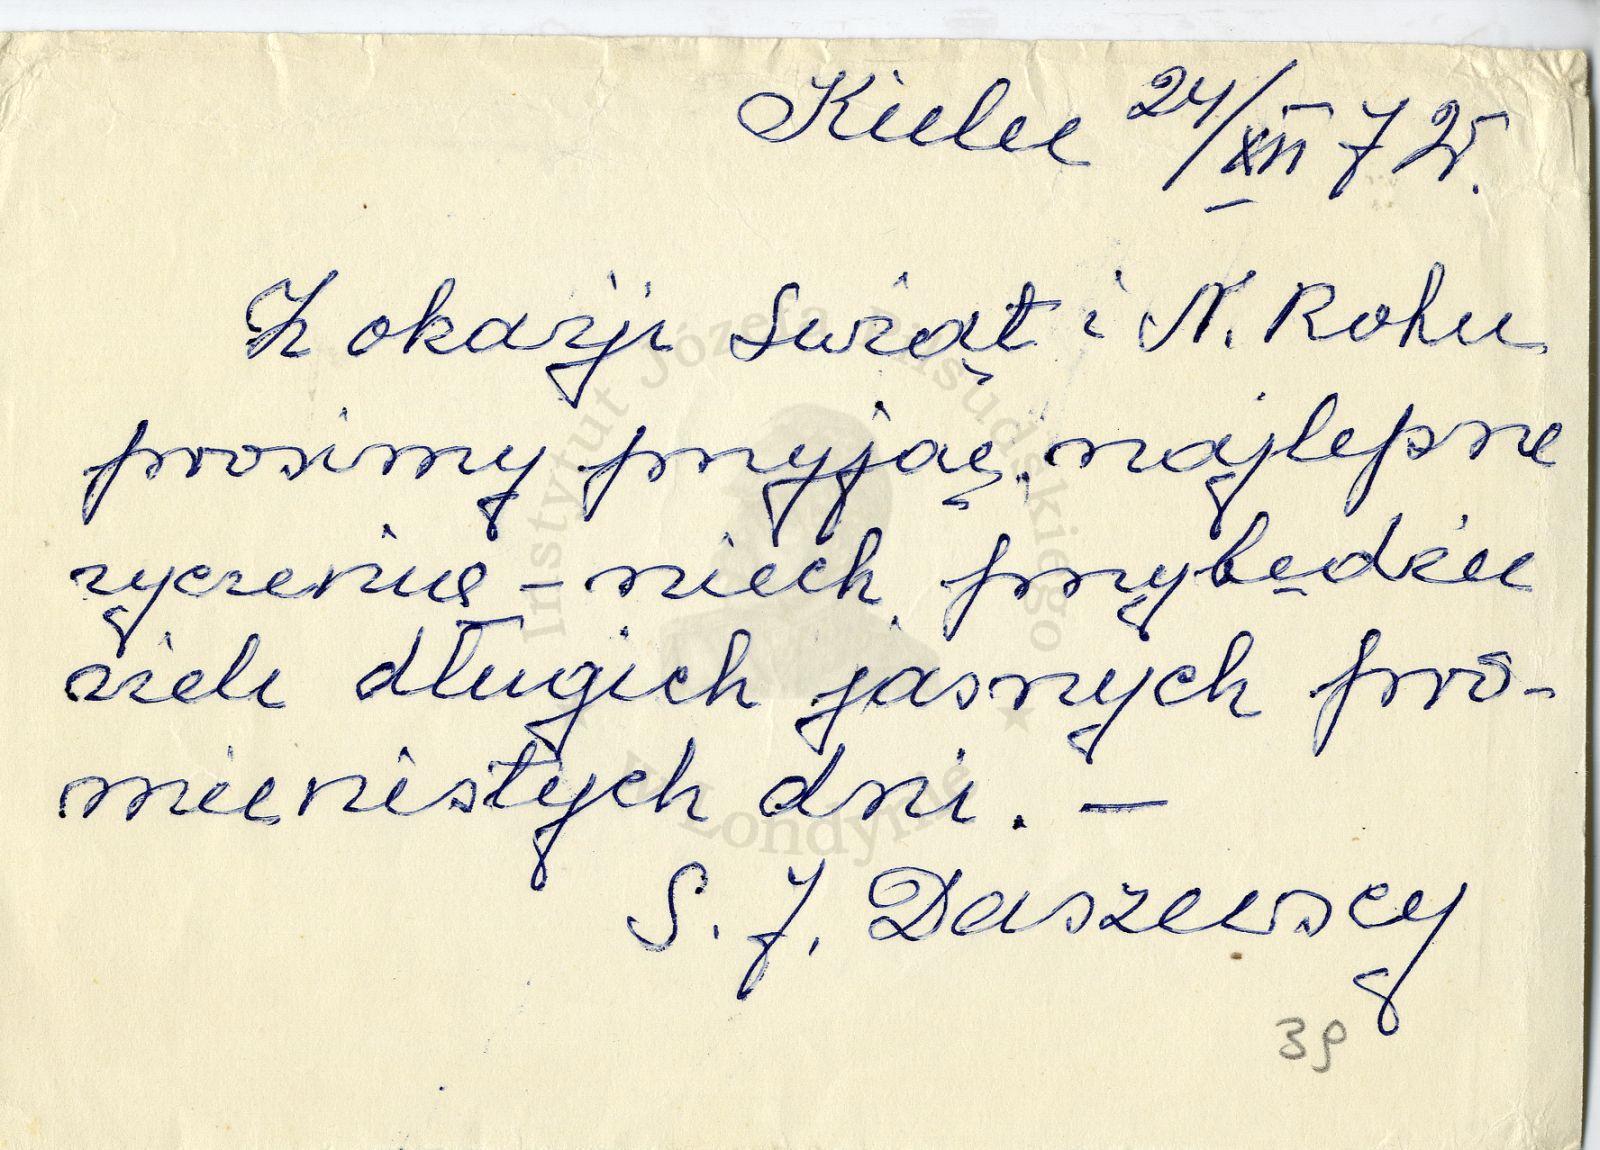 Kielce 24/XII 72r.
Z okazji Świąt i N. Roku
prosimy przyjąć najlepsze
życzenia – niech przybędzie
wiele długich jasnych pro-
mienistych dni. –
S. J. Daszewscy
39
Instytut Józefa Piłsudskiego
w Londynie